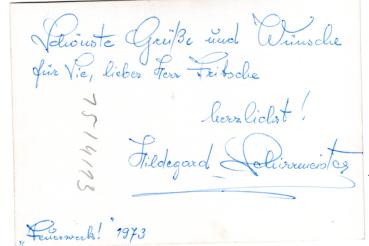 Schönste Grüße und Wünsche
für Sie, lieber Herr Fritsche
herzlichst!
Hildegard Schirrmeister
"Feuerwerk!" 1973